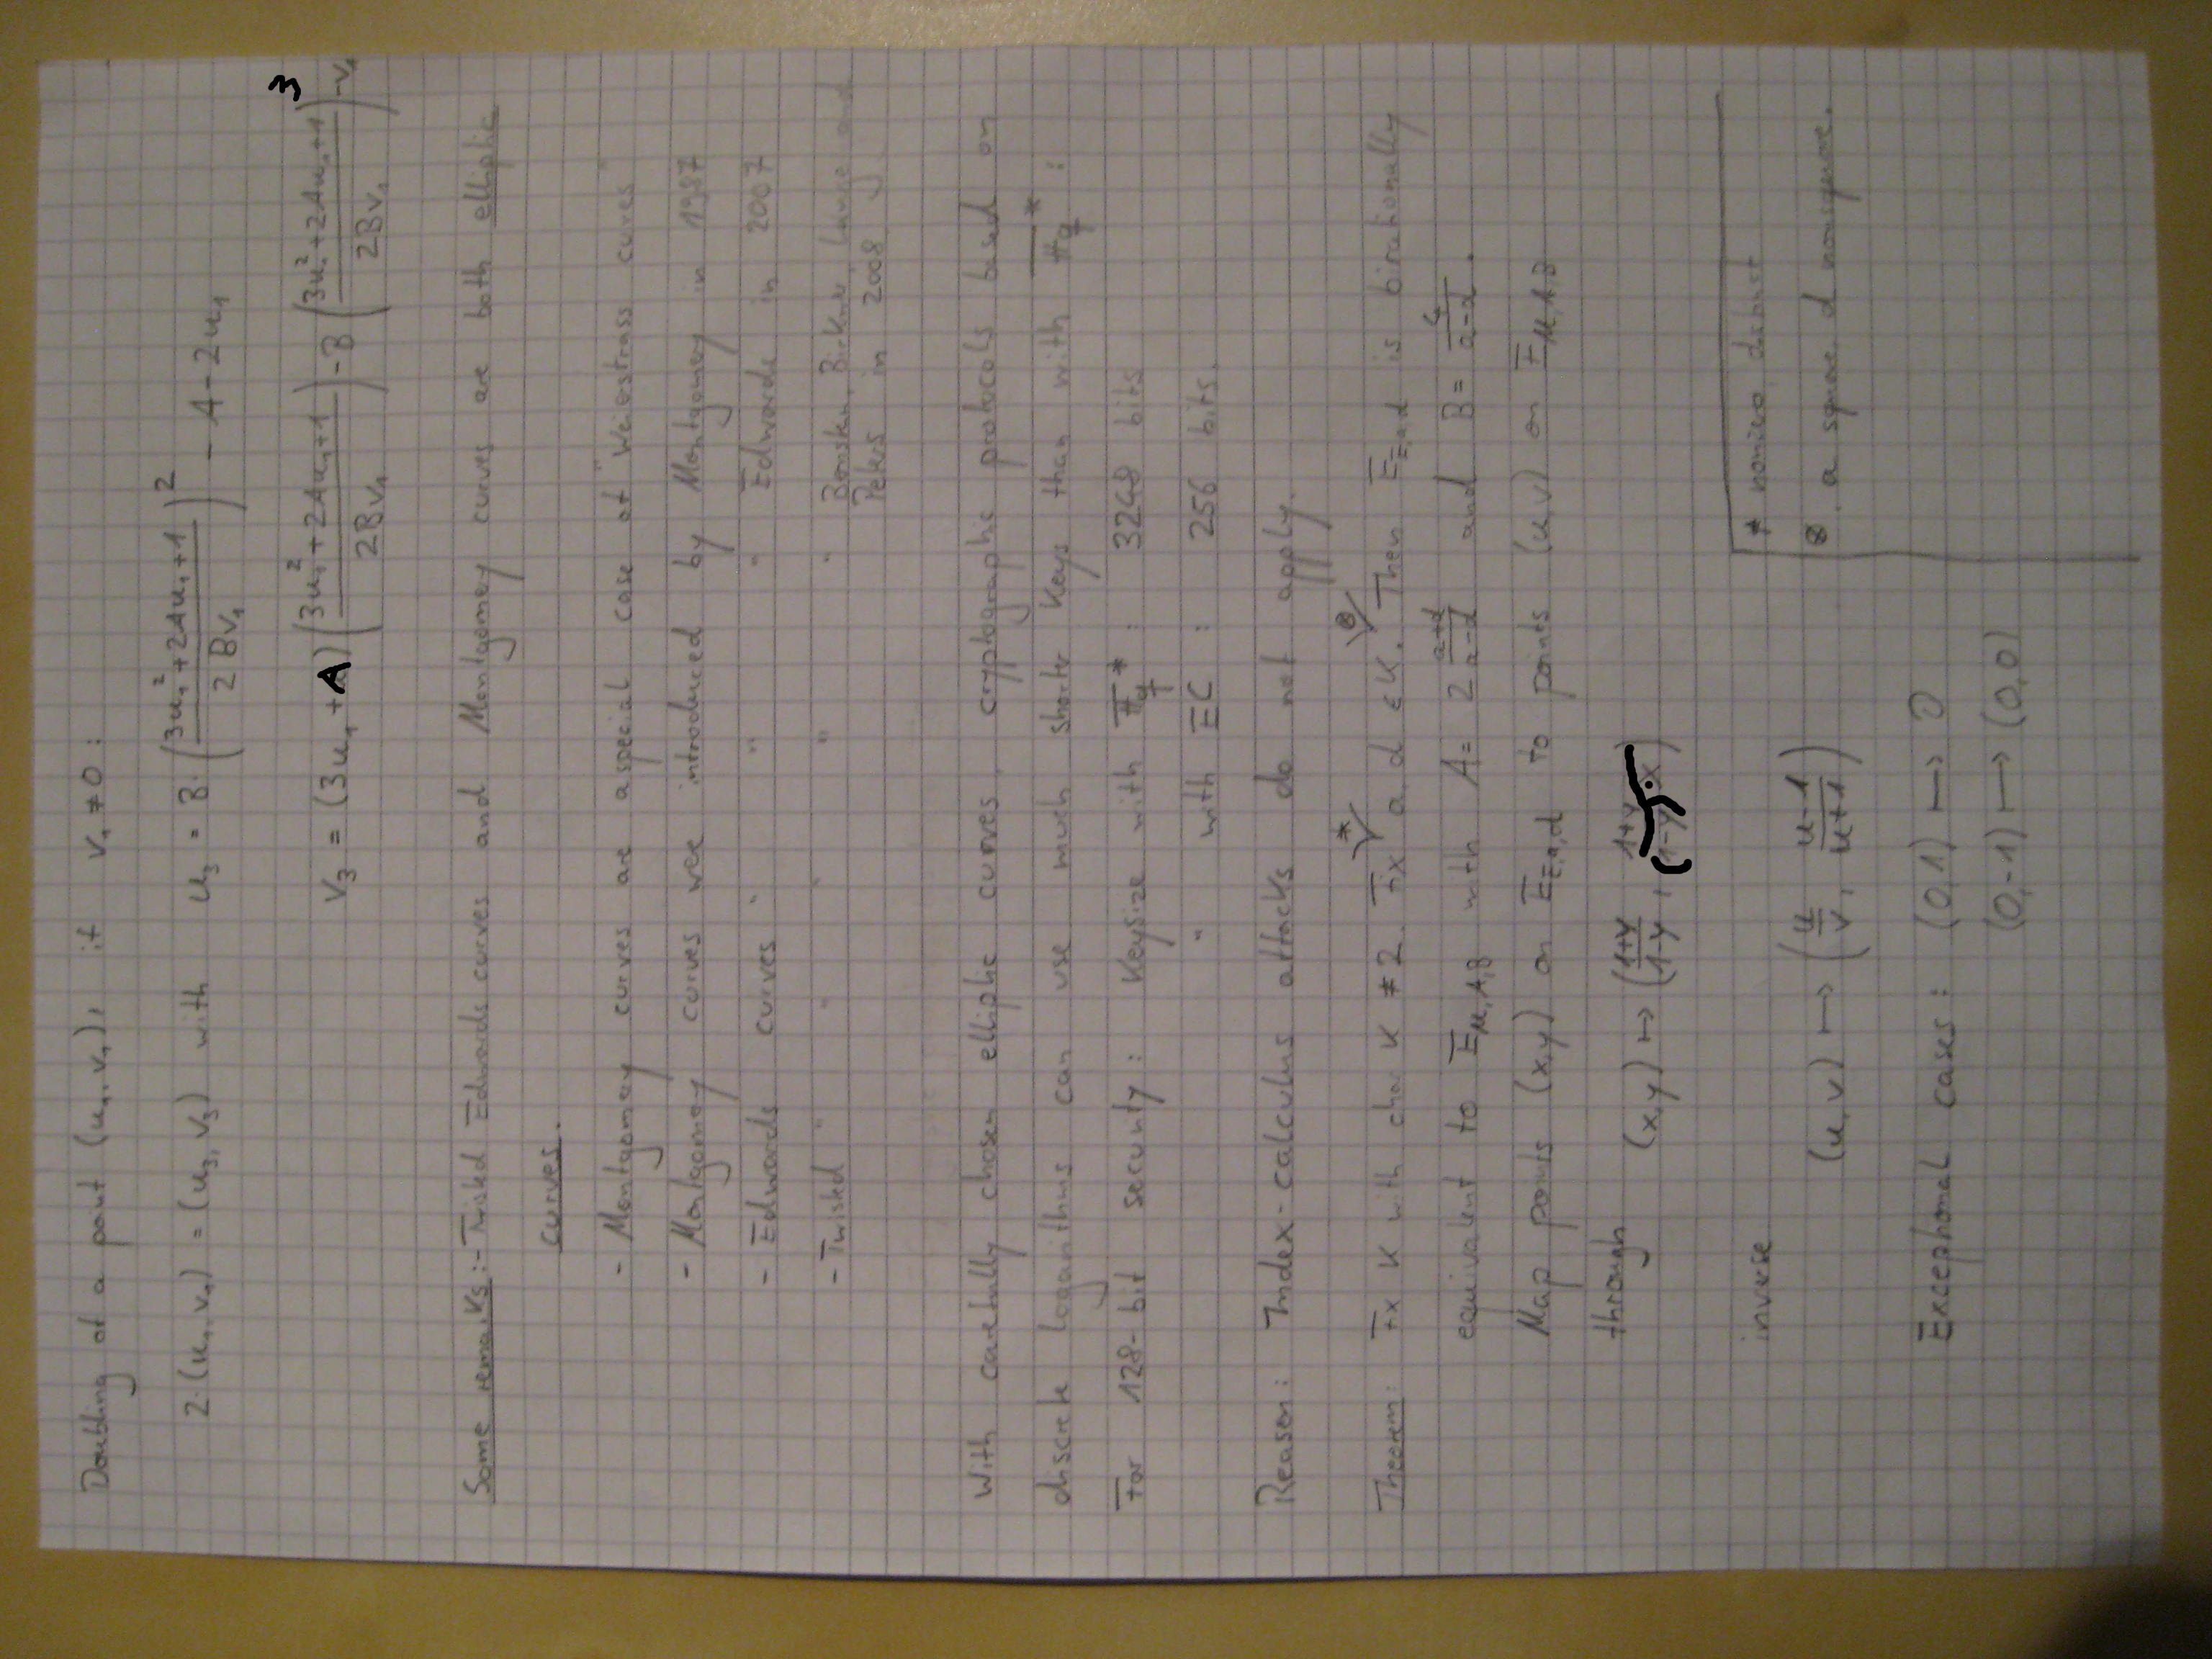 Doubling of a point (u₁,v₁), if v₁ ≠ 0 :
2·(u₁,v₁) = (u₃,v₃) with u₃ = B·((3u₁²+2Au₁+1)/(2Bv₁))² - A - 2u₁
v₃ = (3u₁+A)((3u₁²+2Au₁+1)/(2Bv₁)) - B((3u₁²+2Au₁+1)/(2Bv₁))³ - v₁
Some remarks: - Twisted Edwards curves and Montgomery curves are both elliptic
curves.
- Montgomery curves are a special case of "Weierstrass curves"
- Montgomery curves were introduced by Montgomery in 1987
- Edwards curves " " " Edwards in 2007
- Twisted " " " " " Birkner, Lange and
Peters in 2008
With carefully chosen elliptic curves, cryptographic protocols based on
discrete logarithms can use much shorter keys than with 𝔽q* :
For 128-bit security : Keysize with 𝔽q* : 3248 bits
" with EC : 256 bits.
Reason: Index-calculus attacks do not apply.
Theorem: Fix K with char K ≠ 2. Fix * a d ∈ K. ⊗ Then E_E,a,d is birationally
equivalent to E_M,A,B with A = 2 (a+d)/(a-d) and B = 4/(a-d).
Map points (x,y) on E_E,a,d to points (u,v) on E_M,A,B
through (x,y) ↦ ((1+y)/(1-y), (1+y)/((1-y)·x))
* nonzero, distinct
inverse (u,v) ↦ (u/v, (u-1)/(u+1))
⊗ a square, d nonsquare.
Exceptional cases : (0,1) ↦ O
(0,-1) ↦ (0,0)